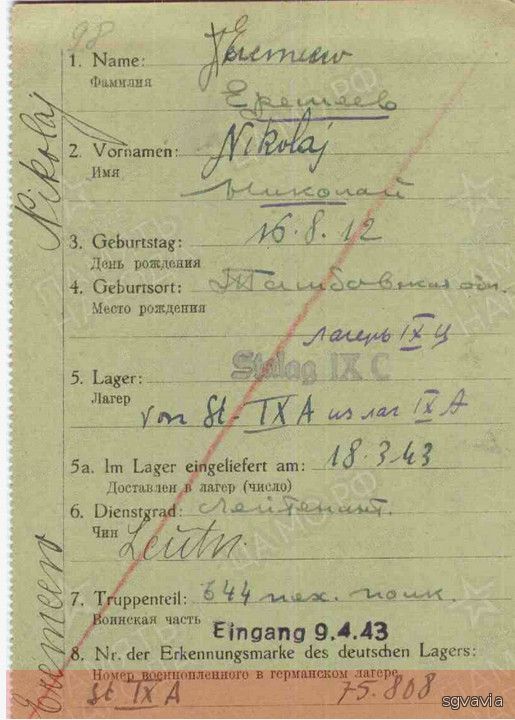 98
1. Name: Jeremeew
Фамилия
Еремеев
2. Vornamen: Nikolaj
Имя
Николай
3. Geburtstag: 16.8.12
День рождения
4. Geburtsort: Тамбовская обл.
Место рождения
лагерь IX Ц
Stalag IX C
5. Lager:
Лагер
von St- IX A из лаг IX A
5a. Im Lager eingeliefert am: 18.3.43
Доставлен в лагер (число)
6. Dienstgrad: Лейтенант.
Чин
Leutn.
7. Truppenteil: 644 пех. полк.
Воинская часть
Eingang 9.4.43
8. Nr. der Erkennungsmarke des deutschen Lagers:
Номер военнопленного в германском лагере
St IX A 75.808
Nikolaj
Eremeew
ЦАМО.РФ
sgvavia